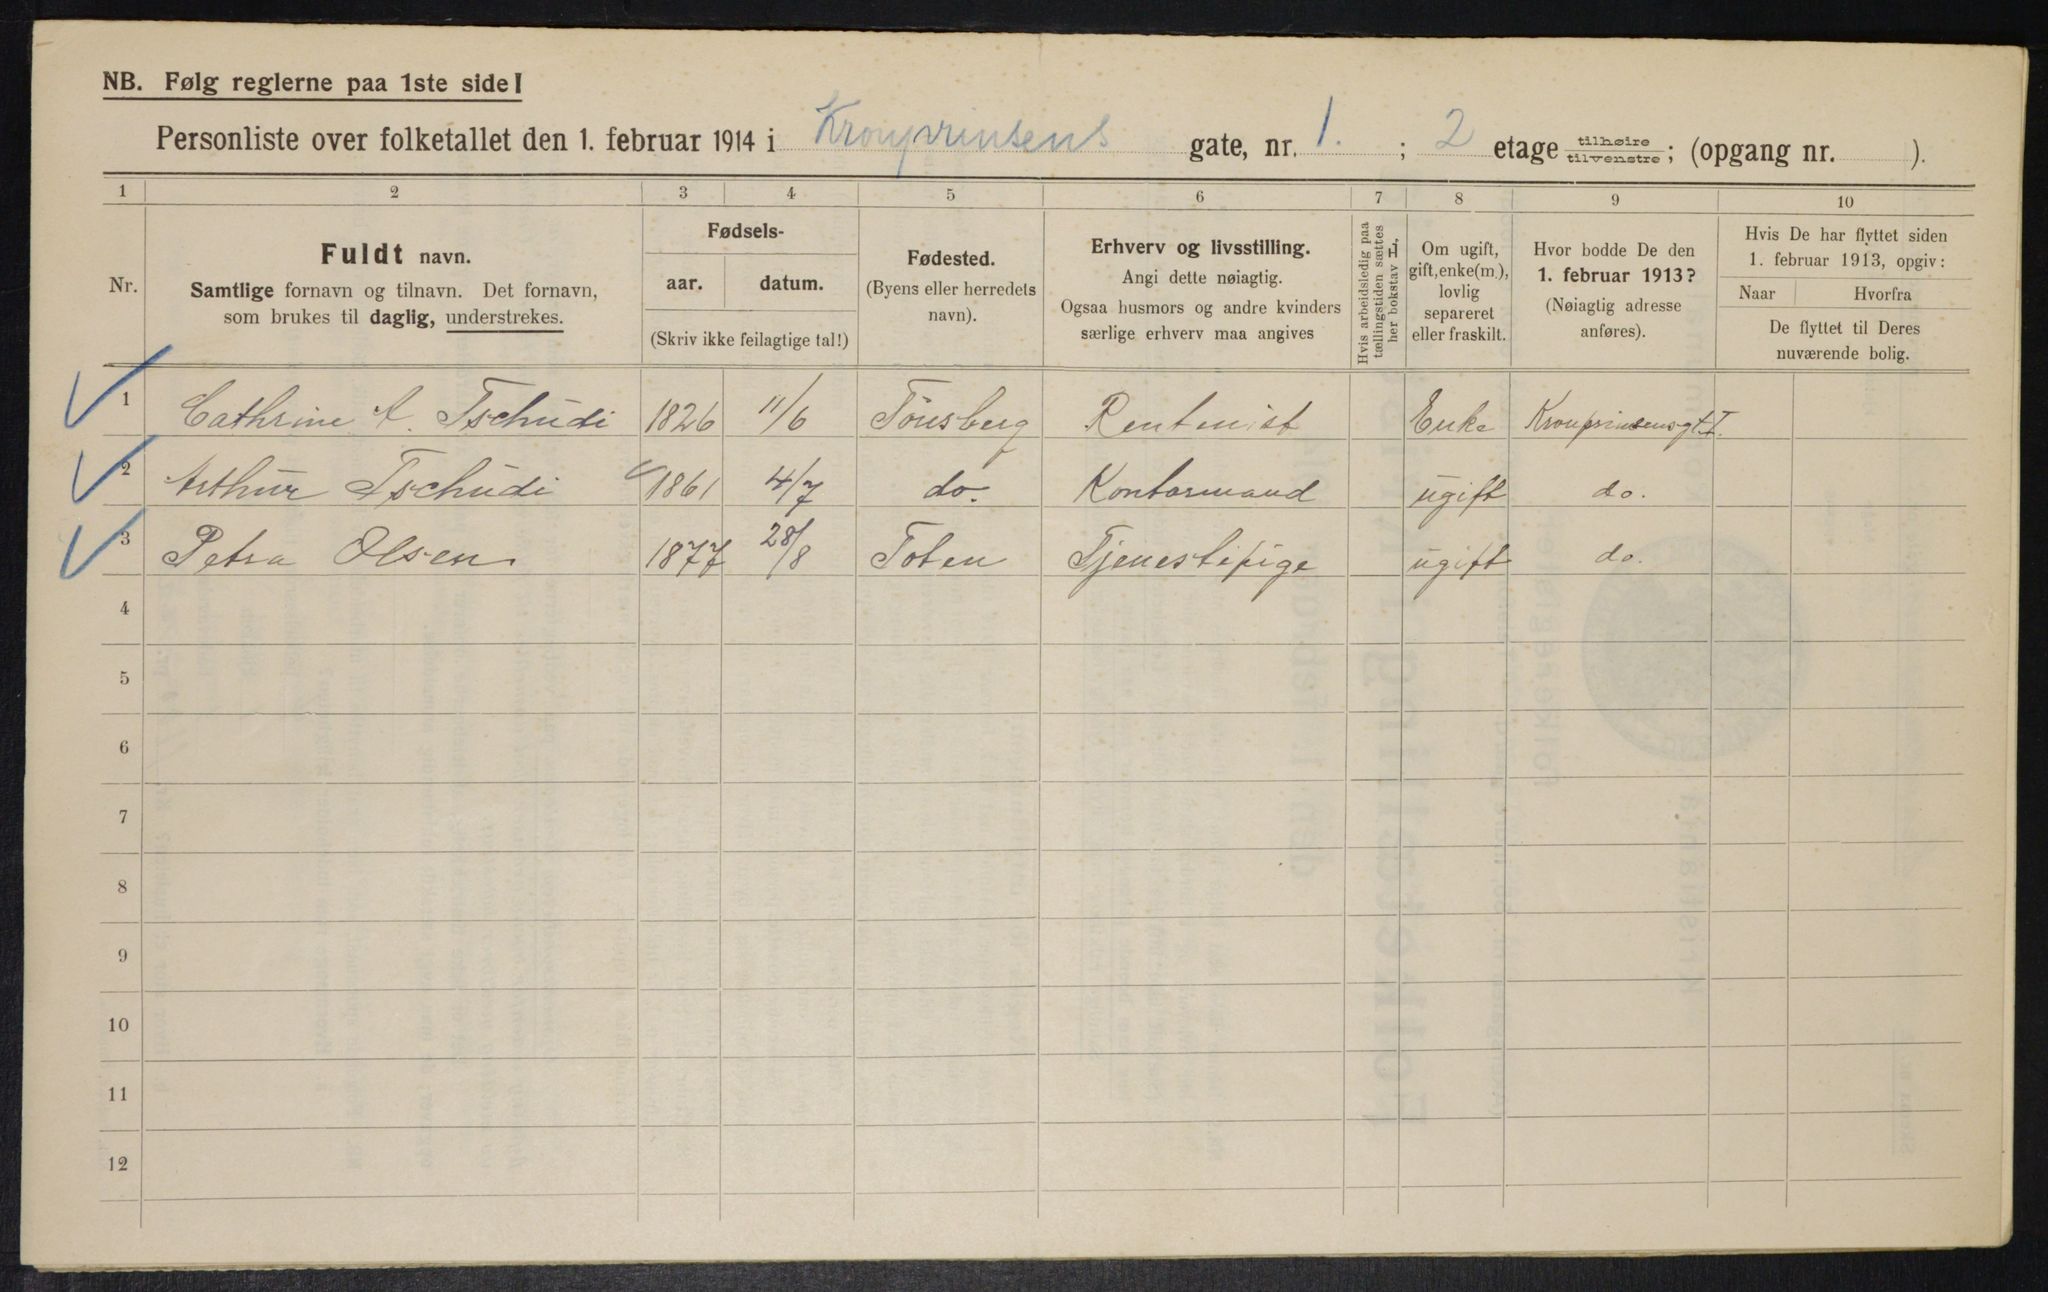 NB. Følg reglerne paa 1ste side!
Personliste over folketallet den 1. februar 1914 i Kronprinsens gate, nr. 1. ; 2 etage tilhøire tilvenstre ; (opgang nr. ).
1 2 3 4 5 6 7 8 9 10
Nr.
Fuldt navn.
Samtlige fornavn og tilnavn. Det fornavn,
som brukes til daglig, understrekes.
Fødsels-
aar. datum.
(Skriv ikke feilagtige tal!)
Fødested.
(Byens eller herredets
navn).
Erhverv og livsstilling.
Angi dette nøiagtig.
Ogsaa husmors og andre kvinders
særlige erhverv maa angives
Hvis arbeidsledig paa
tællingstiden sættes
her bokstav L.
Om ugift,
gift, enke(m.),
lovlig
separeret
eller fraskilt.
Hvor bodde De den
1. februar 1913?
(Nøiagtig adresse
anføres).
Hvis De har flyttet siden
1. februar 1913, opgiv:
Naar Hvorfra
De flyttet til Deres
nuværende bolig.
1 Cathrine A. Tschudi 1826 11/6 Tönsberg Rentenist Enke Kronprinsensgt. I.
2 Arthur Tschudi 1861 4/7 do. Kontormand ugift do.
3 Petra Olsen 1877 28/8 Toten Tjenestepige ugift do.
4
5
6
7
8
9
10
11
12